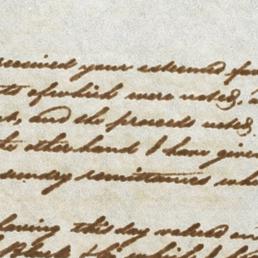 received your esteemed fav
of which were noted,
and the proceeds noted
the other hand I have given
sundry remittances wh
having this day valued on
Black
which I